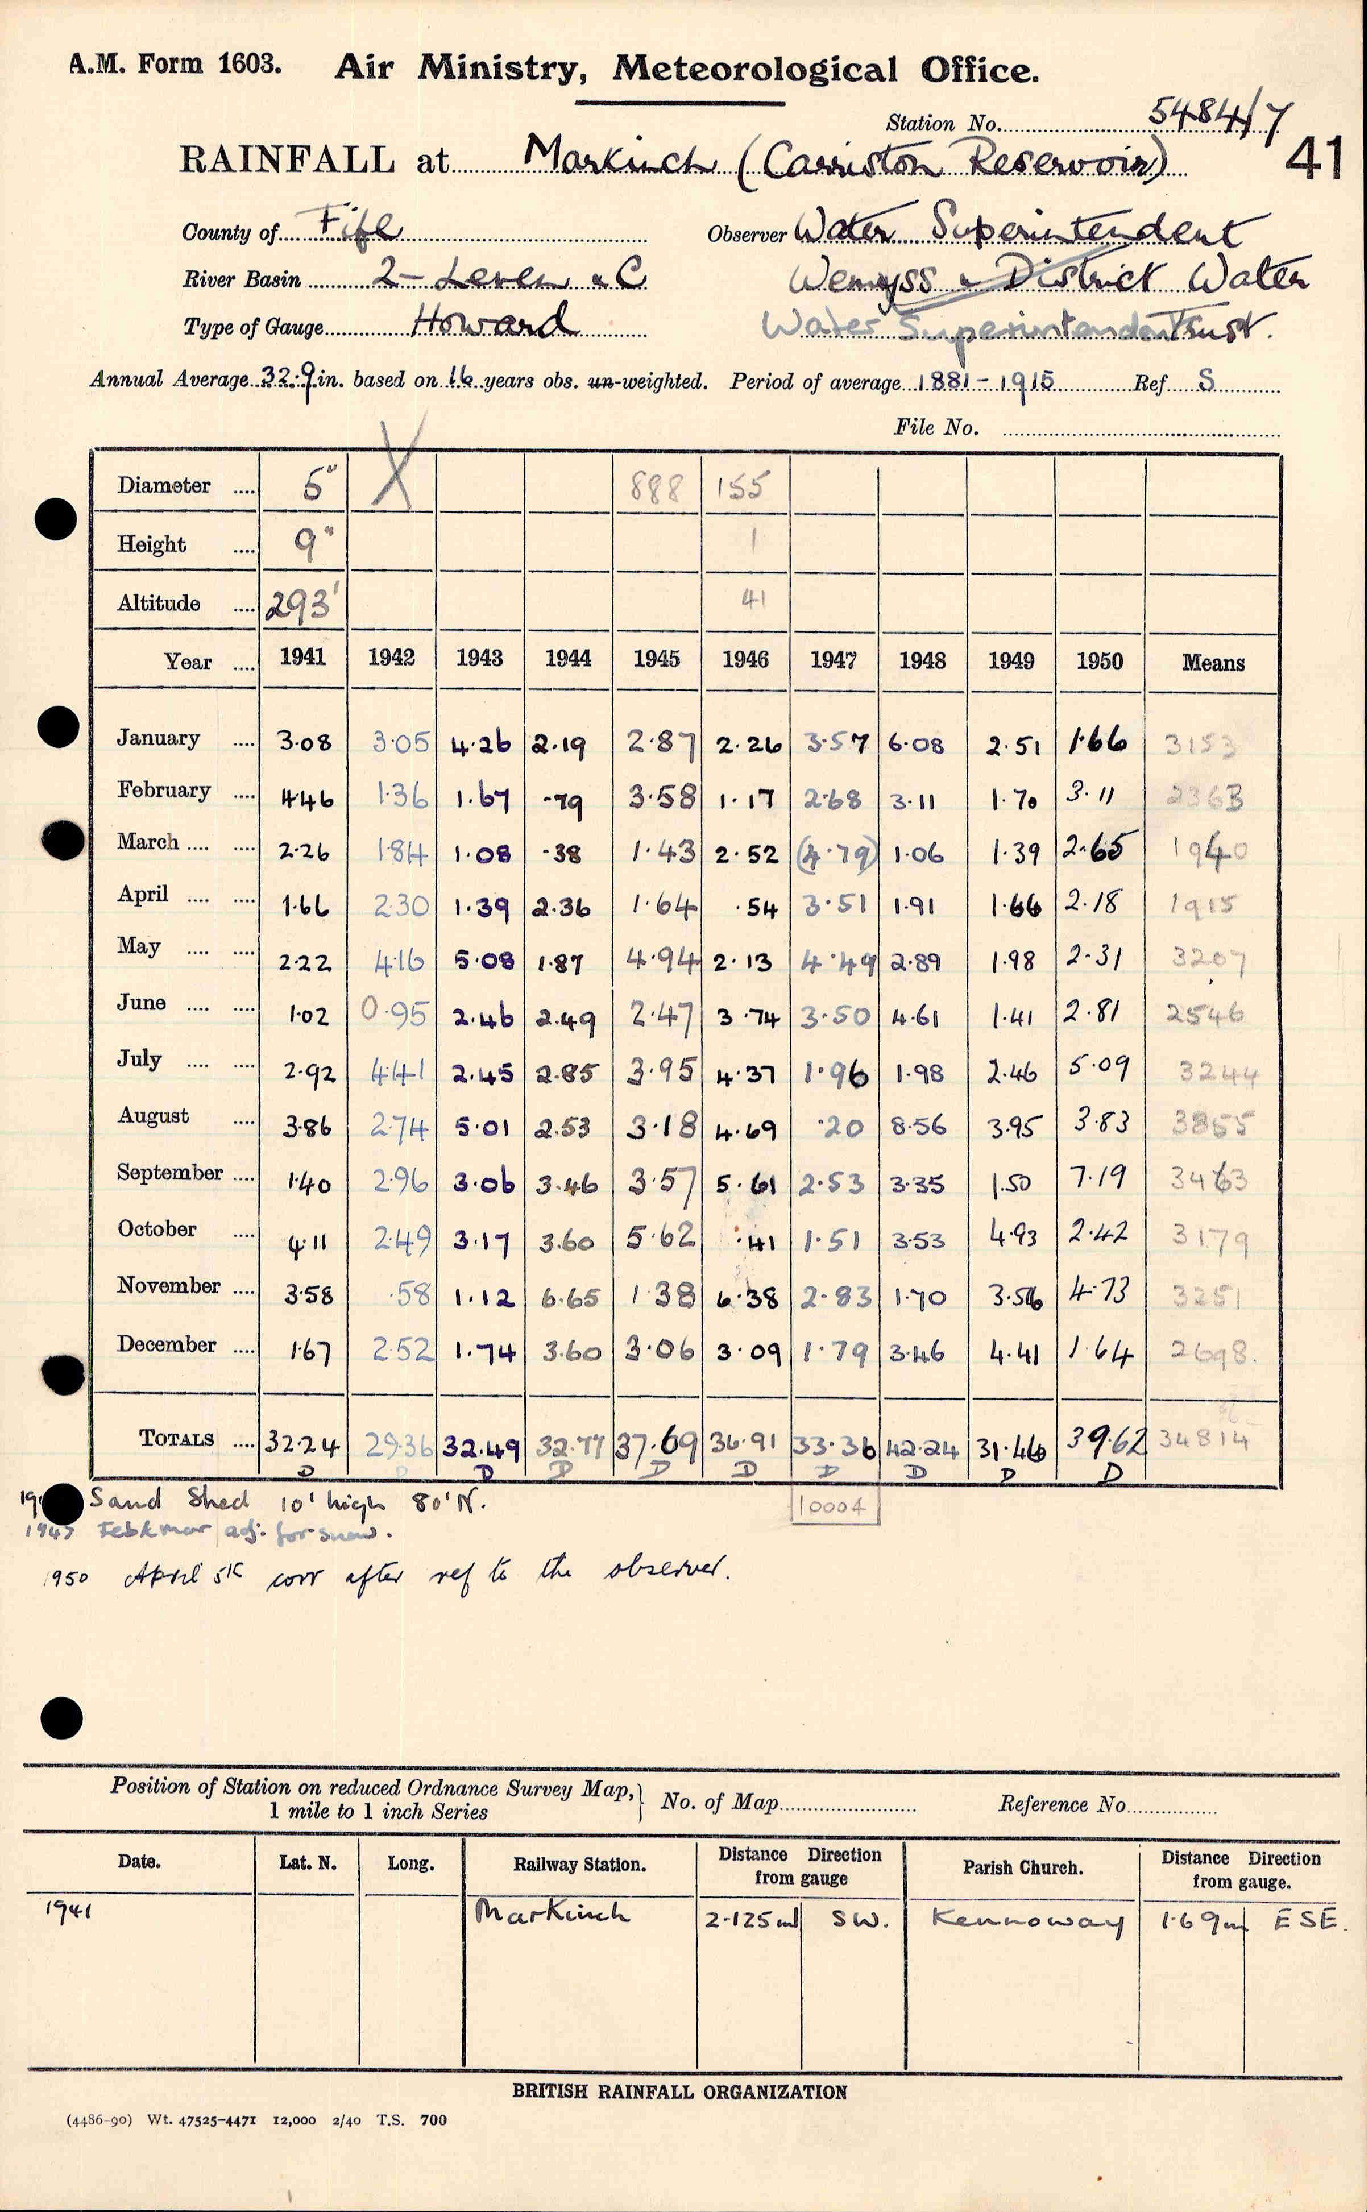 A.M. Form 1603. Air Ministry, Meteorological Office.
Station No. 5484/7
RAINFALL at Markinch (Carriston Reservoir) 41
County of Fife Observer Water Superintendent
River Basin 2 - Leven & C Wemyss & District Water
Type of Gauge Howard Water Superintendent Trust.
Annual Average 32.9 in. based on 16 years obs. un-weighted. Period of average 1881-1915 Ref S
File No.
Diameter 5" X 888 155
Height 9" 1
Altitude 293' 41
Year 1941 1942 1943 1944 1945 1946 1947 1948 1949 1950 Means
January 3.08 3.05 4.26 2.19 2.87 2.26 3.57 6.08 2.51 1.66 3153
February 4.46 1.36 1.67 .79 3.58 1.17 2.68 3.11 1.70 3.11 2363
March 2.26 1.84 1.08 .38 1.43 2.52 (4.79) 1.06 1.39 2.65 1940
April 1.66 2.30 1.39 2.36 1.64 .54 3.51 1.91 1.66 2.18 1915
May 2.22 4.16 5.08 1.87 4.94 2.13 4.49 2.89 1.98 2.31 3207
June 1.02 0.95 2.46 2.49 2.47 3.74 3.50 4.61 1.41 2.81 2546
July 2.92 4.41 2.45 2.85 3.95 4.37 1.96 1.98 2.46 5.09 3244
August 3.86 2.74 5.01 2.53 3.18 4.69 .20 8.56 3.95 3.83 3855
September 1.40 2.96 3.06 3.46 3.57 5.61 2.53 3.35 1.50 7.19 3463
October 4.11 2.49 3.17 3.60 5.62 .41 1.51 3.53 4.93 2.42 3179
November 3.58 .58 1.12 6.65 1.38 6.38 2.83 1.70 3.56 4.73 3251
December 1.67 2.52 1.74 3.60 3.06 3.09 1.79 3.46 4.41 1.64 2698
TOTALS 32.24 29.36 32.49 32.77 37.69 36.91 33.36 42.24 31.46 39.62 34814
D D D D D D D D D D
Sand Shed 10' high 80' N. 10004
1947 Feb & mar adj. for snow.
1950 April 5th corr after ref to the observer.
Position of Station on reduced Ordnance Survey Map, 1 mile to 1 inch Series } No. of Map Reference No.
Date. Lat. N. Long. Railway Station. Distance Direction from gauge Parish Church. Distance Direction from gauge.
1941 Markinch 2.125 ml SW. Kennoway 1.69 ml ESE.
BRITISH RAINFALL ORGANIZATION
(4486-90) Wt. 47525-4471 12,000 2/40 T.S. 700